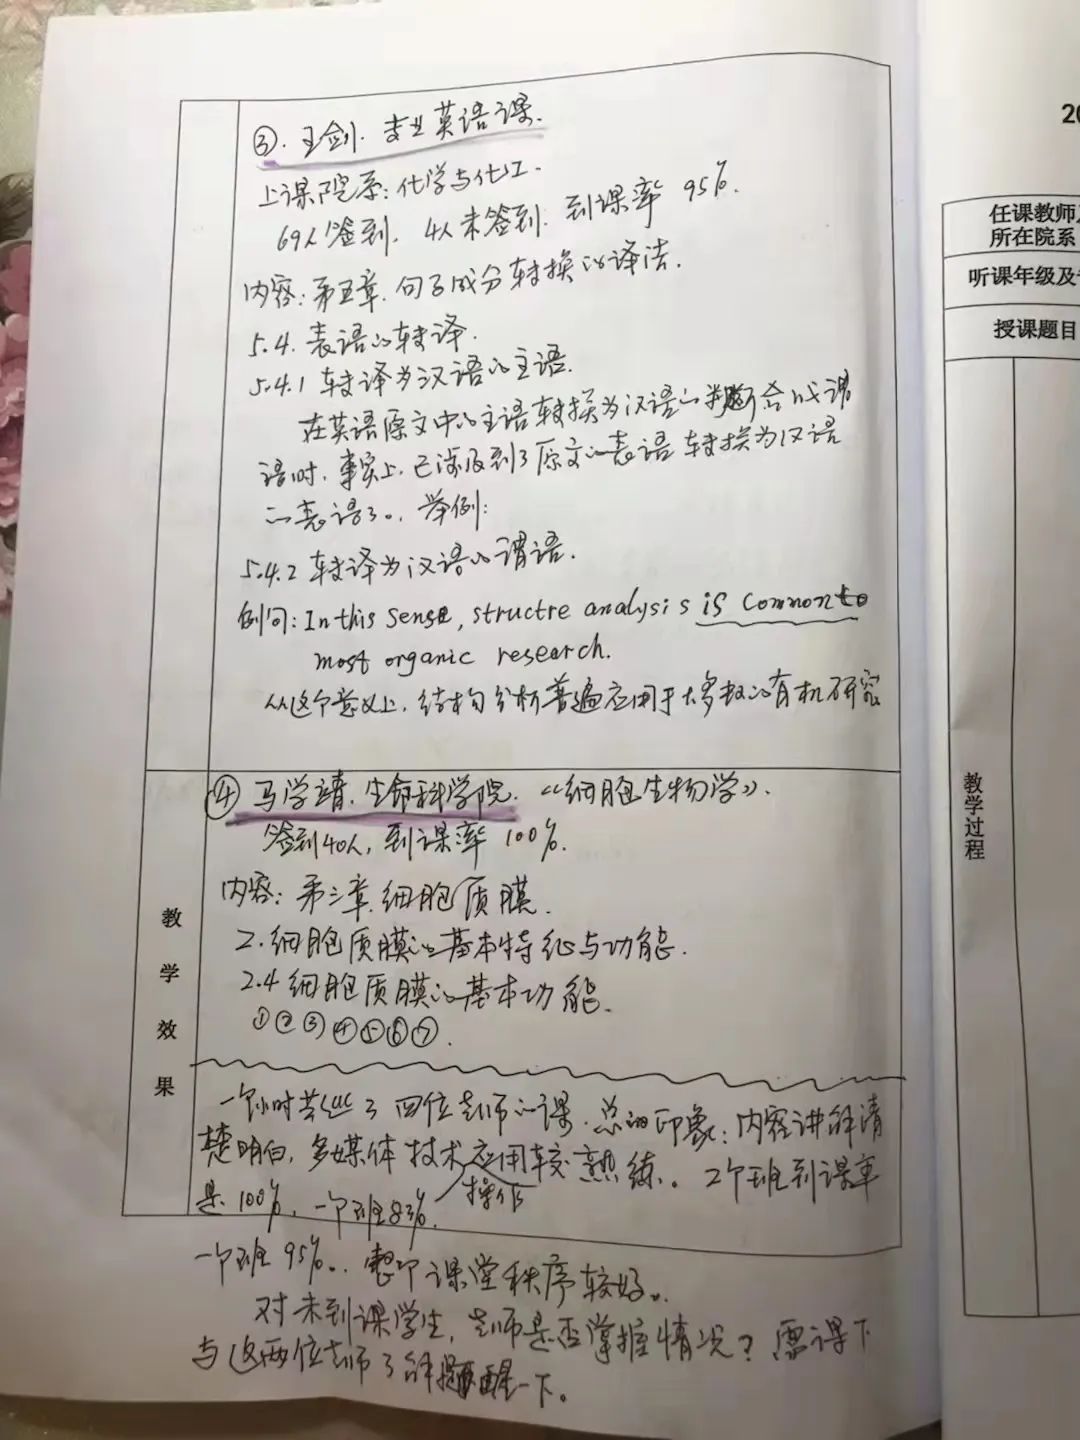 ③. 王剑. 专业英语课.
上课院系: 化学与化工.
69人签到, 4人未签到. 到课率 95%.
内容: 第五章. 句子成分转换的译法.
5.4. 表语的转译.
5.4.1 转译为汉语的主语.
在英语原文中的主语转换为汉语的判断合成谓
语时, 事实上, 已涉及到了原文的表语转换为汉语
的表语了。. 举例:
5.4.2 转译为汉语的谓语.
例句: In this sense, structre analysis is common to
most organic research.
从这个意义上, 结构分析普遍应用于大多数的有机研究
④ 马学靖. 生命科学院. 《细胞生物学》.
签到40人, 到课率 100%.
内容: 第三章. 细胞质膜.
2. 细胞质膜的基本特征与功能.
2.4 细胞质膜的基本功能.
①②③④⑤⑥⑦.
一个小时共 了四位老师的课. 总的印象: 内容讲解清
楚明白, 多媒体技术应用较熟练。2个班到课率
操作
是 100%, 一个班83%,
一个班 95%., 整个课堂秩序较好。
对未到课学生, 老师是否掌握情况? 需课下
与这两位老师了解提醒一下。
教
学
效
果
20
任课教师及
所在院系
听课年级及专
授课题目
教学过程